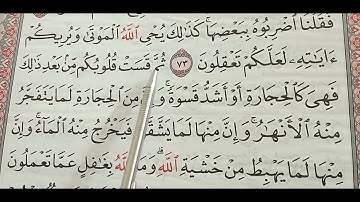 فَقُلْنَا ٱضْرِبُوهُ بِبَعْضِهَا ۚ كَذَٰلِكَ يُحْىِ ٱللَّهُ ٱلْمَوْتَىٰ وَيُرِيكُمْ
ءَايَٰتِهِۦ لَعَلَّكُمْ تَعْقِلُونَ ٧٣ ثُمَّ قَسَتْ قُلُوبُكُم مِّنۢ بَعْدِ ذَٰلِكَ
فَهِىَ كَٱلْحِجَارَةِ أَوْ أَشَدُّ قَسْوَةً ۚ مِنَ ٱلْحِجَارَةِ لَمَا يَتَفَجَّرُ
مِنْهُ ٱلْأَنْهَٰرُ ۚ وَإِنَّ مِنْهَا لَمَا يَشَّقَّقُ فَيَخْرُجُ مِنْهُ ٱلْمَآءُ ۚ وَإِنَّ
مِنْهَا لَمَا يَهْبِطُ مِنْ خَشْيَةِ ٱللَّهِ ۗ وَمَا ٱللَّهُ بِغَٰفِلٍ عَمَّا تَعْمَلُونَ